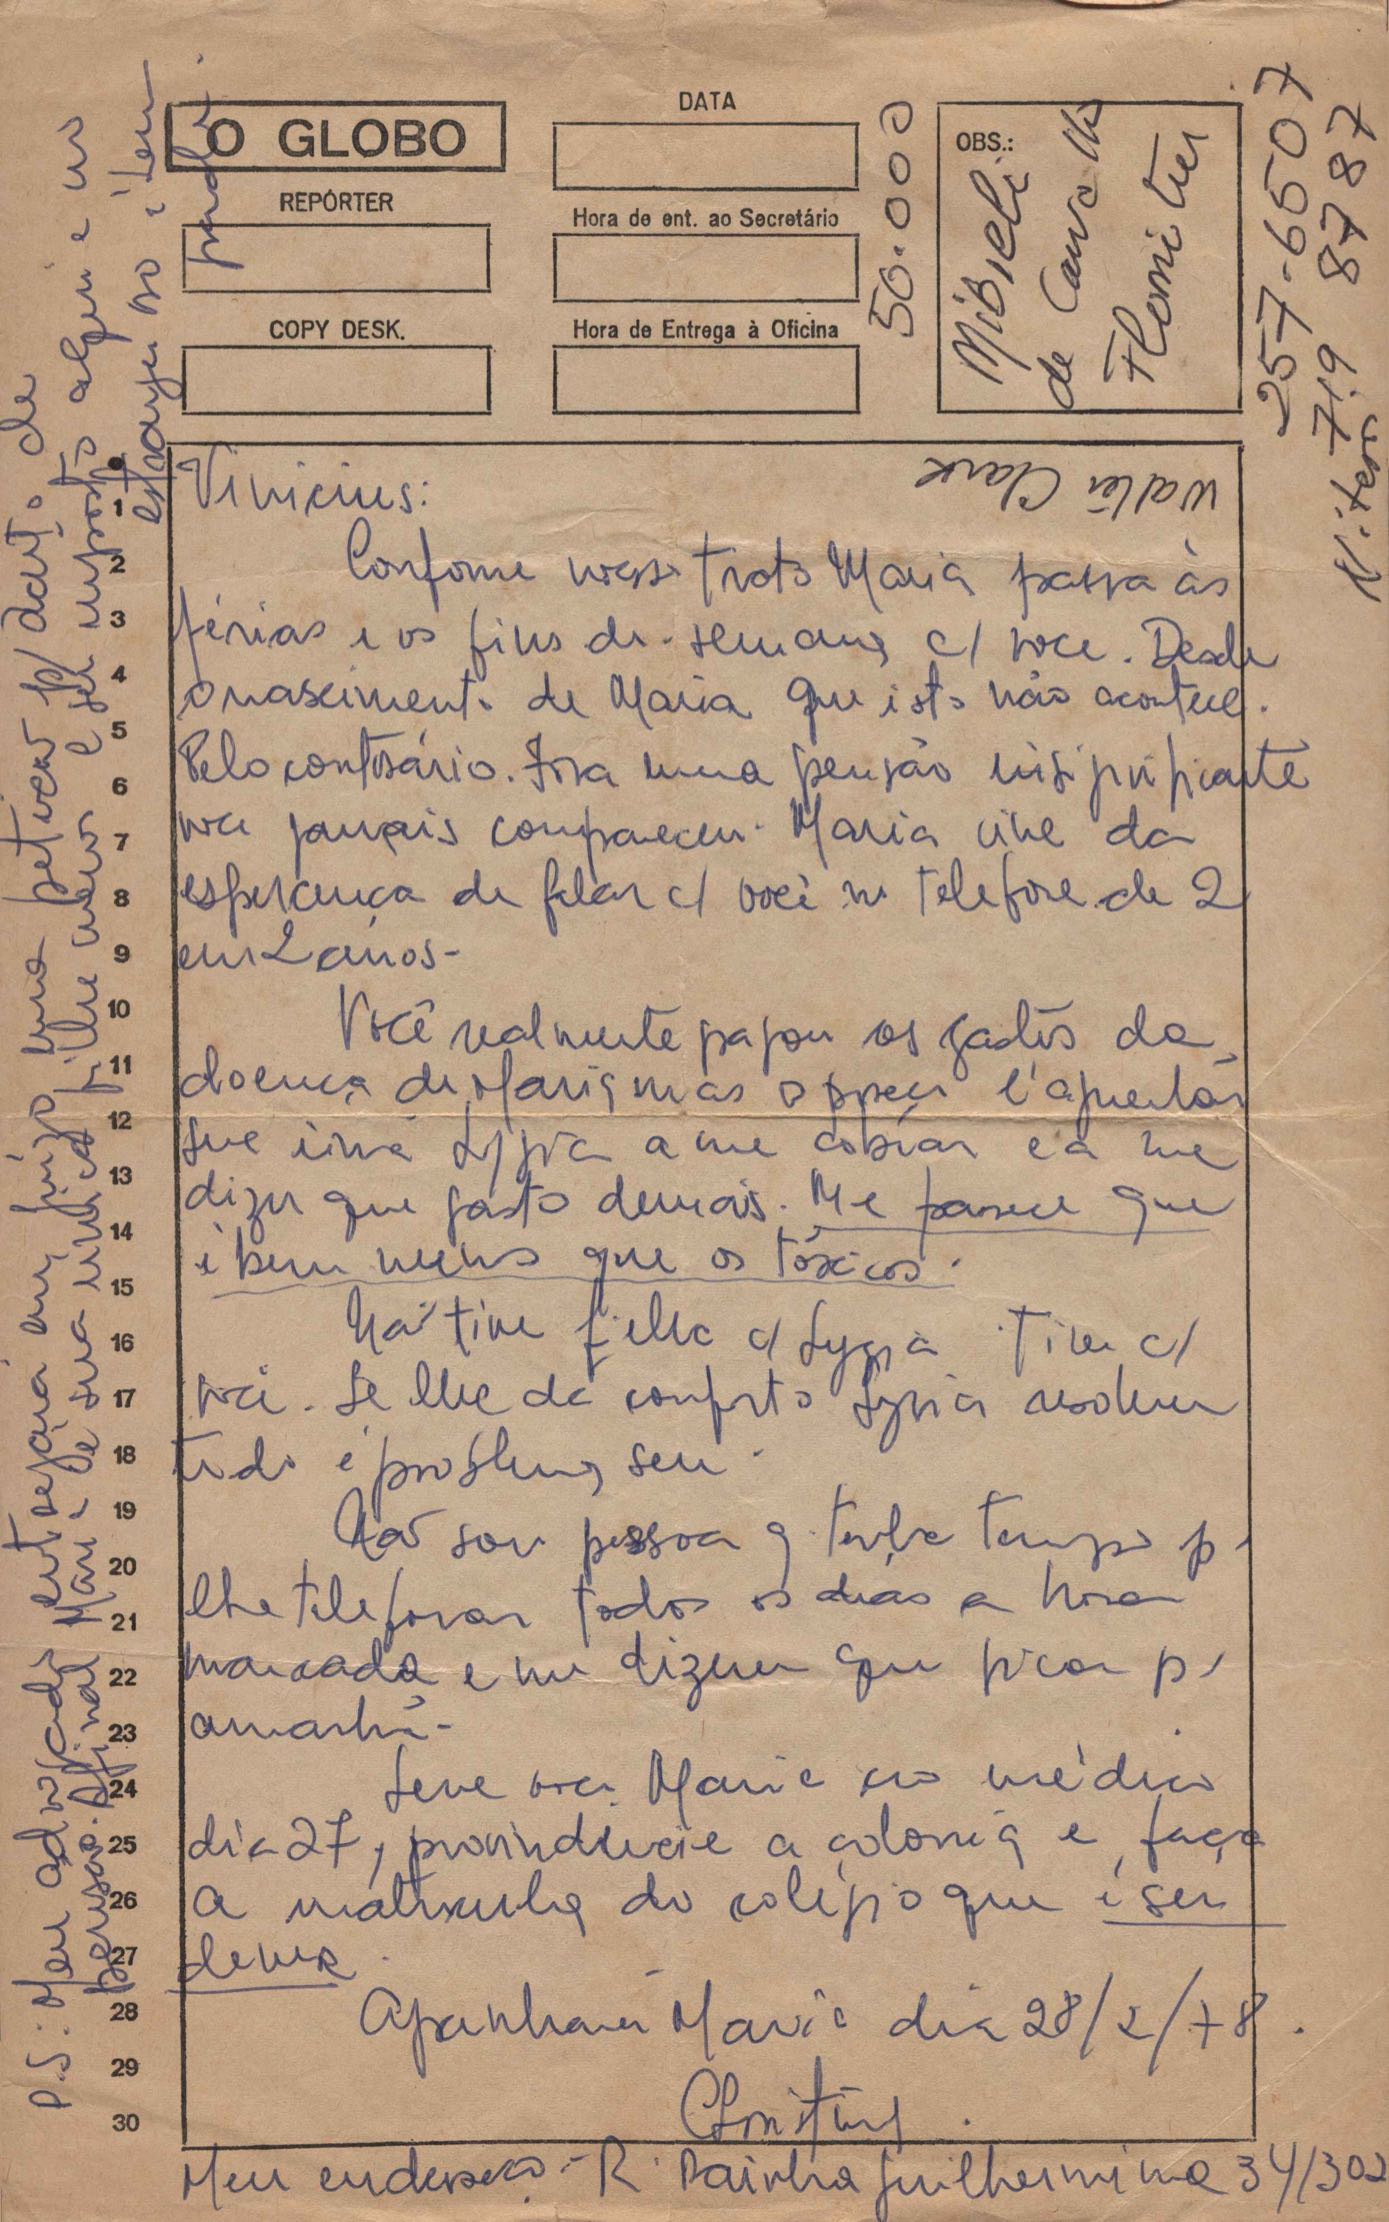 O GLOBO
DATA
REPÓRTER
Hora de ent. ao Secretário
COPY DESK.
Hora de Entrega à Oficina
OBS.:
50.000
de Carvalho
257-6507
719 8787
Walter Clark
Vinicius:
Conforme nosso trato Maria passa às
férias e os fins de semana c/ voce. Desde
o nascimento de Maria que isto não acontece.
Pelo contrário. Fora uma pensão insignificante
voce jamais compareceu. Maria vive da
esperança de falar c/ você no telefone de 2
em 2 anos-
Você realmente pagou os gastos da
doença de Maria mas o preço é aguentar
sua irmã Lygia a me cobrar e a me
dizer que gasto demais. Me parece que
é bem menos que os tóxicos.
Não tive filha c/ Lygia tive c/
voce. Se lhe da conforto Lygia resolver
tudo é problema seu.
Não sou pessoa q. tenha tempo p/
lhe telefonar todos os dias a hora
marcada e me dizerem que ficou p/
amanhã-
Leve voce Maria ao médico
dia 27, providencie a colonia e faça
a matricula do colégio que é seu
dever.
Apanharei Maria dia 28/2/78.
Christina
Meu endereço - R. Rainha Guilhermina 34/302
P.S: Meu advogado entregará em juizo uma petição p/ acerto de
pensão. Afinal Maria é sua unica filha menor e seu imposto
1
2
3
4
5
6
7
8
9
10
11
12
13
14
15
16
17
18
19
20
21
22
23
24
25
26
27
28
29
30